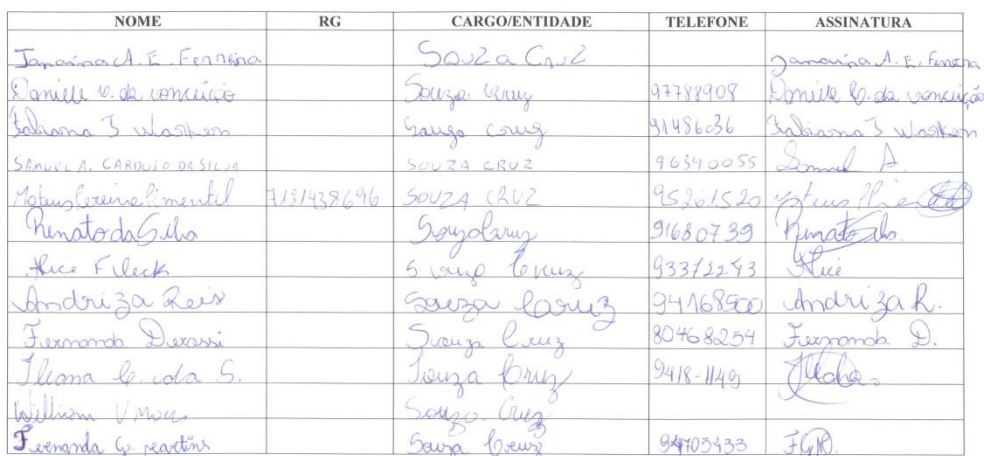 NOME RG CARGO/ENTIDADE TELEFONE ASSINATURA
Janaina A. E. Ferreira Souza Cruz Janaina A. E. Ferreira
Daniele C. da Conceição Souza Cruz 97788908 Daniele C. da Conceição
Fabiana S Souza Cruz 91486036 Fabiana S
SAMUEL A. CARDOSO DA SILVA SOUZA CRUZ 96340055 Samuel A.
Mateus Pereira Pimentel SOUZA CRUZ 95261520 Mateus
Renato da Silva Souza Cruz 91680739 Renato
Alice Fleck Souza Cruz 93312243 Alice
Andriza Reis Souza Cruz 94168900 Andriza R.
Fernanda Derassi Souza Cruz 80468254 Fernanda D.
Ileana C. da S. Souza Cruz 9418-1149
William V Souza Cruz
Fernanda G. Martins Souza Cruz 94703433